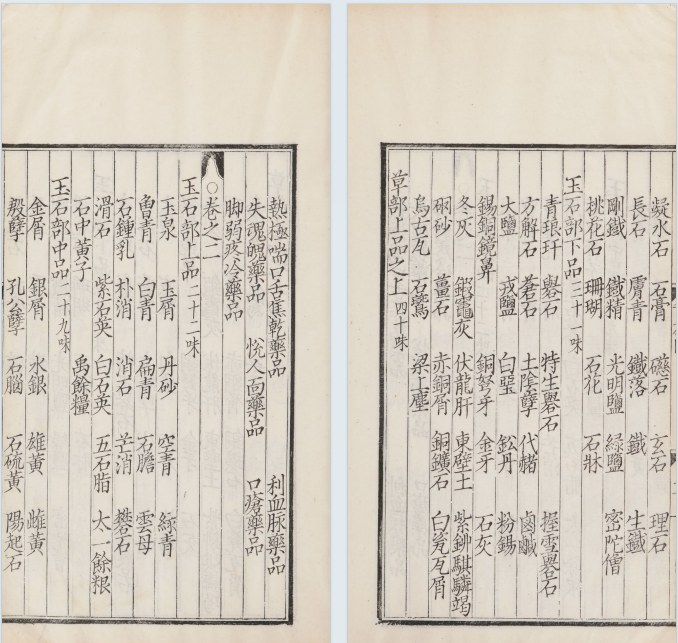 熱極喘口舌焦乾藥品 利血脉藥品
失魂魄藥品 悅人面藥品 口瘡藥品
脚弱疼冷藥品
○卷之二
玉石部上品二十二味
玉泉 玉屑 丹砂 空青 綠青
曾青 白青 扁青 石膽 雲母
石鍾乳 朴消 消石 芒消 礬石
滑石 紫石英 白石英 五石脂 太一餘粮
石中黃子 禹餘糧
玉石部中品二十九味
金屑 銀屑 水銀 雄黃 雌黃
殷孽 孔公孽 石腦 石硫黃 陽起石
凝水石 石膏 磁石 玄石 理石
長石 膚青 鐵落 鐵 生鐵
剛鐵 鐵精 光明鹽 綠鹽 密陀僧
桃花石 珊瑚 石花 石牀
玉石部下品三十一味
青琅玕 礜石 特生礜石 握雪礜石
方解石 蒼石 土陰孽 代赭 鹵鹹
大鹽 戎鹽 白堊 鈆丹 粉錫
錫銅鏡鼻 銅弩牙 金牙 石灰
冬灰 鍛竈灰 伏龍肝 東壁土 紫鉚騏驎竭
硇砂 薑石 赤銅屑 銅鑛石 白瓷瓦屑
烏古瓦 石鷰 梁上塵
草部上品之上四十味